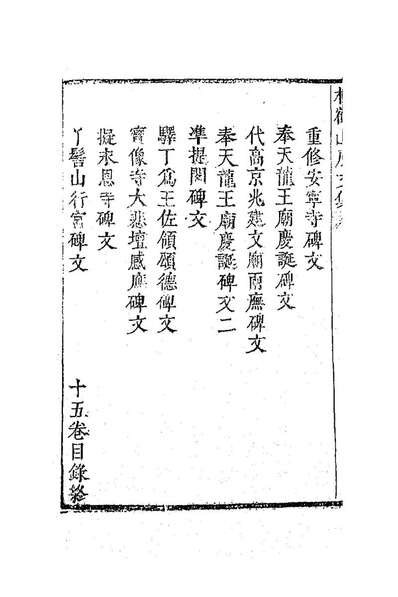 山房文集
重修安寧寺碑文
奉天龍王廟慶誕碑文
代高京兆建文廟兩廡碑文
奉天龍王廟慶誕碑文二
準提閣碑文
驛丁爲王佐領頌德碑文
寶像寺大悲壇感應碑文
擬來恩寺碑文
丫髻山行宮碑文
十五卷目錄終